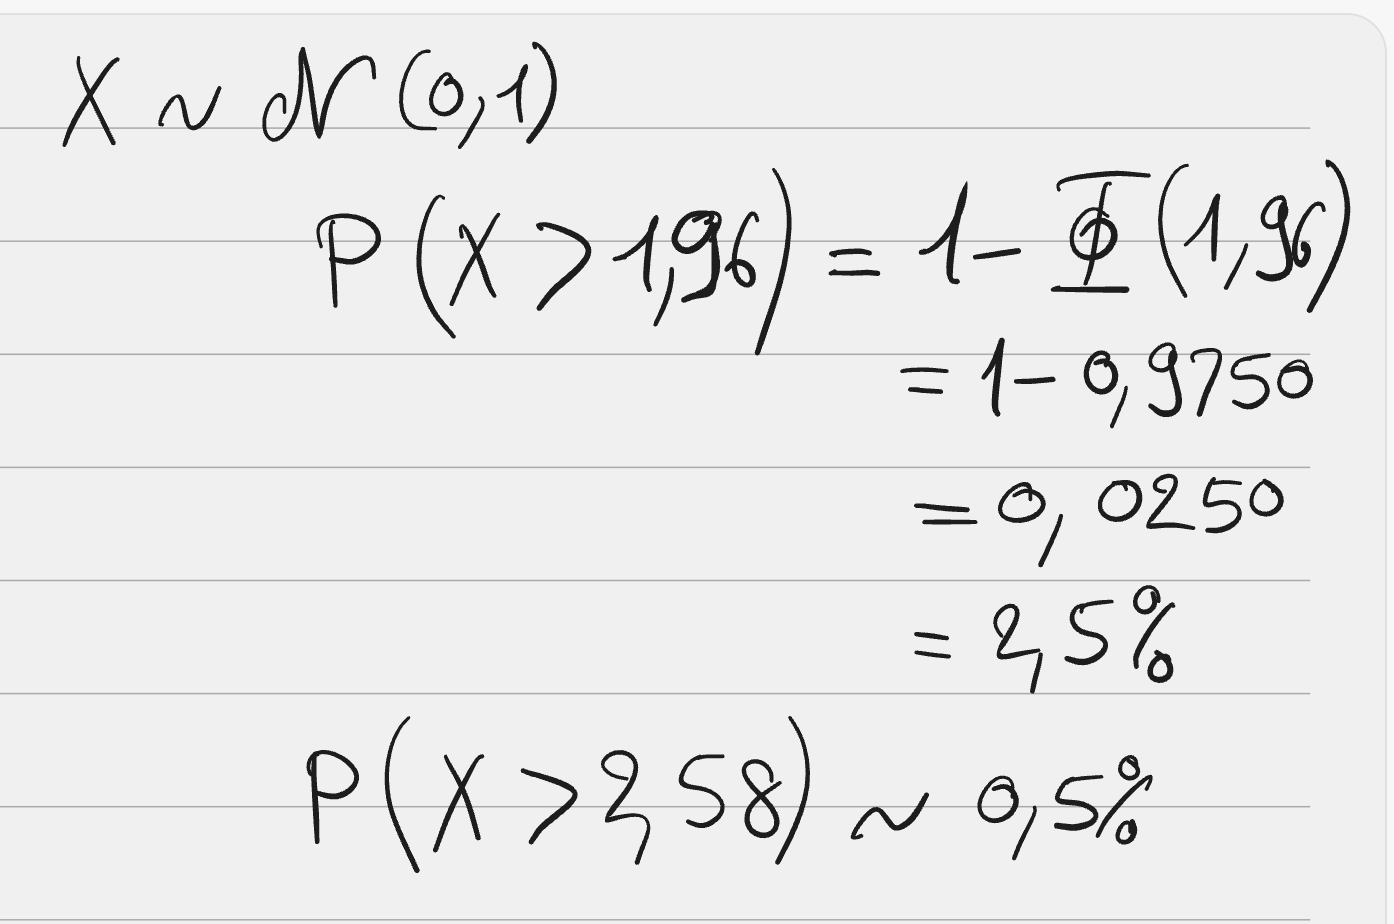 X ~ N(0,1)
P(X > 1,96) = 1 - Φ(1,96)
= 1 - 0,9750
= 0,0250
= 2,5%
P(X > 2,58) ~ 0,5%